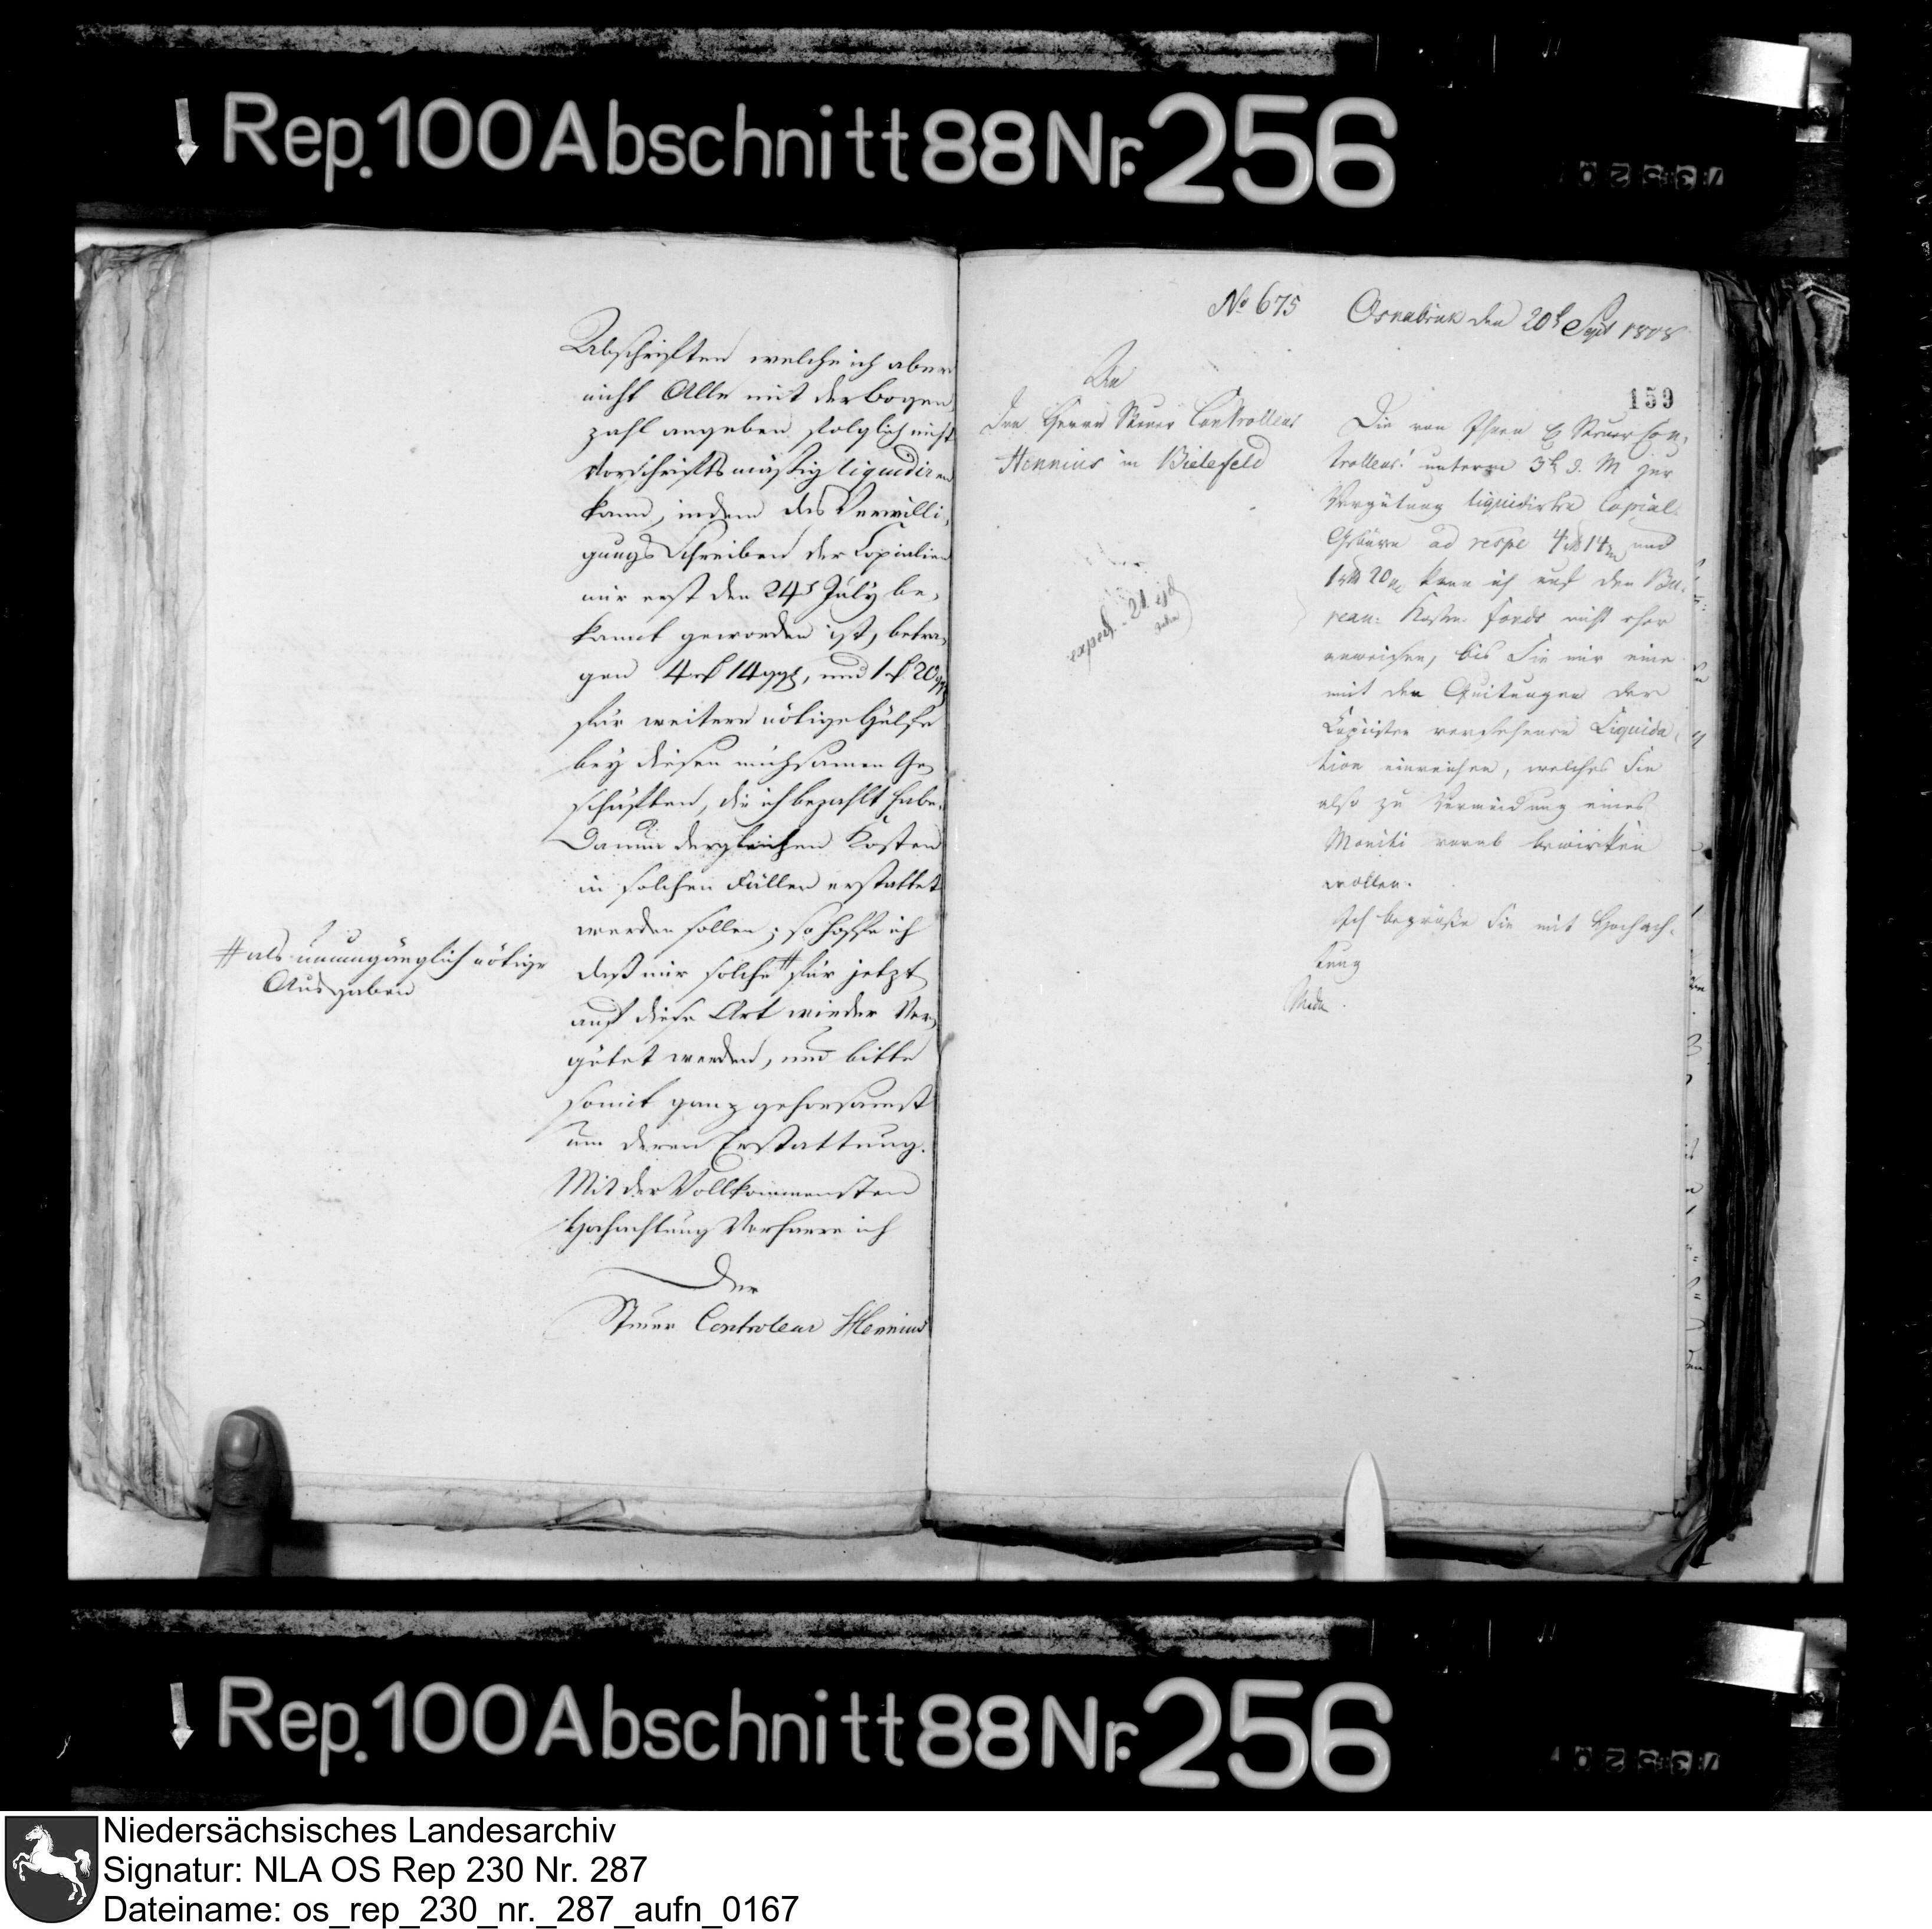 Rep. 100 Abschnitt 88 Nr. 256
Abschriften welche ich aber
nicht Alle mit der Bogen
zahl angeben folglich nicht
vorschriftsmäßig liquidiren
kann, indem das Verwilli,
gungs Schreiben der Copialien
mir erst den 24t July be,
kannt geworden ist, betra,
gen 4 rl 14 ggl, und 1 rl 20 ggl
für weitere nötige Hülfe
bey diesen mühsamen Ge,
schäften, die ich bezahlt habe.
Da nun dergleichen Kosten
in solchen Fällen erstattet
werden sollen; so hoffe ich
daß mir solche # für jetzt
auf diese Art wieder Ver,
gütet werden, und bitte
somit ganz gehorsamst
um deren Erstattung.
Mit der Vollkommensten
Hochachtung Verharre ich
Der
Steuer Controleur Hennius
# als unumgänglich nötige
Ausgaben
No 675 Osnabruk den 20t Sept 1808
159
An
den Herrn Steuer Controlleur
Hennius in Bielefeld
exped. 21
Die von Ihnen H Steuer Con,
trolleur! unterm 3t d. M zur
Vergütung liquidirte Copial
Gebüren ad respe 4 14 und
1 20 kann ich auf den Bu,
reau: Kosten fonds nicht eher
anweisen, bis Sie mir eine
mit den Quitungen der
Copiisten versehene Liquida
tion einreichen, welches Sie
also zu Vermeidung eines
Moniti vorab bewirken
wollen.
Ich begrüße Sie mit Hochach,
tung
Rep. 100 Abschnitt 88 Nr. 256
Niedersächsisches Landesarchiv
Signatur: NLA OS Rep 230 Nr. 287
Dateiname: os_rep_230_nr._287_aufn_0167